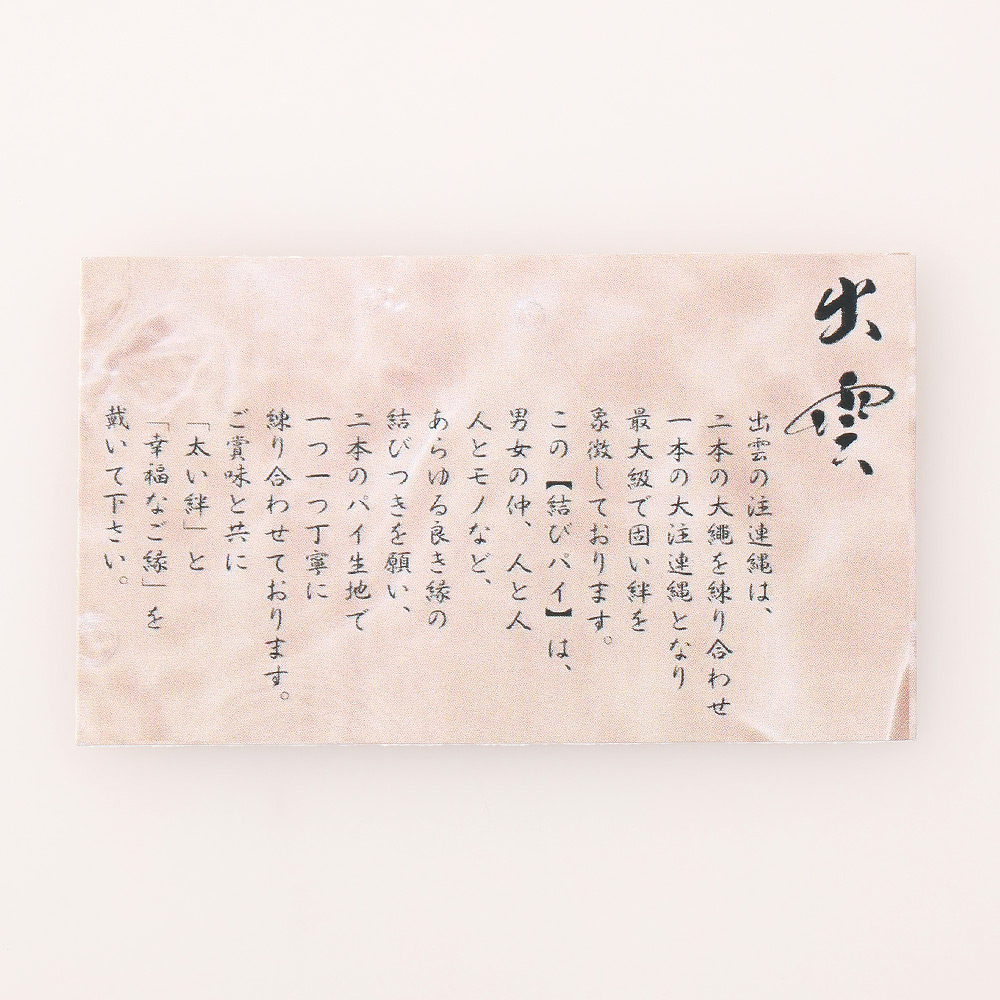 出雲
出雲の注連縄は、
二本の大縄を練り合わせ
一本の大注連縄となり
最大級で固い絆を
象徴しております。
この【結びパイ】は、
男女の仲、人と人
人とモノなど、
あらゆる良き縁の
結びつきを願い、
二本のパイ生地で
一つ一つ丁寧に
練り合わせております。
ご賞味と共に
「太い絆」と
「幸福なご縁」を
戴いて下さい。